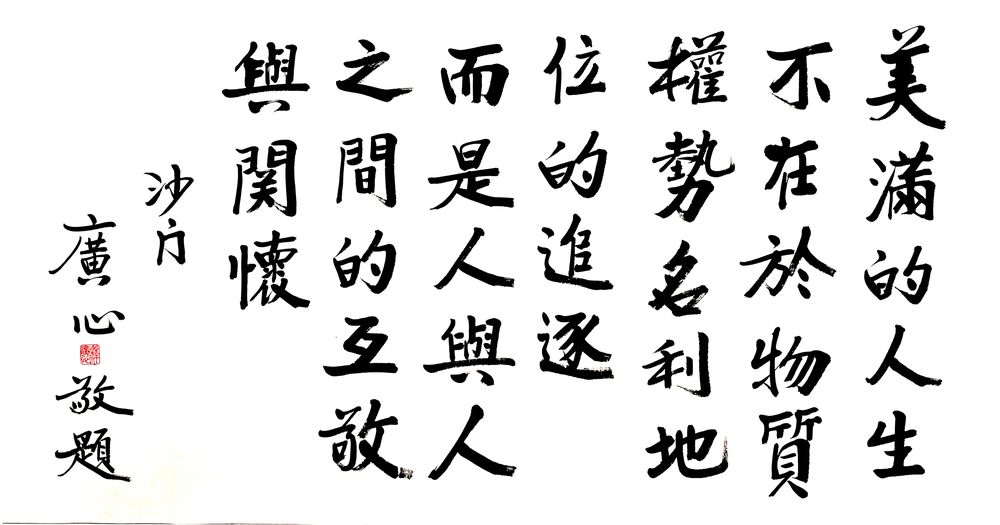 美滿的人生
不在於物質
權勢名利地
位的追逐
而是人與人
之間的互敬
與関懷
沙门
廣心敬題